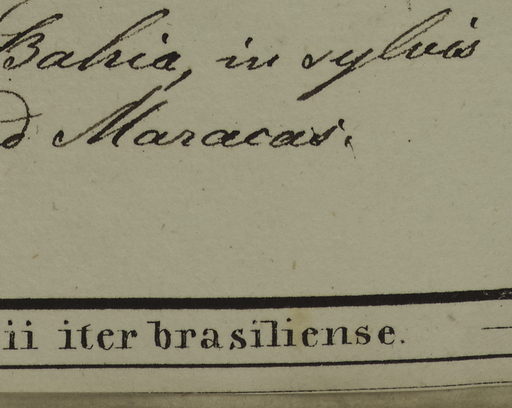 Bahia, in sylvis
d Maracas.
ii iter brasiliense.